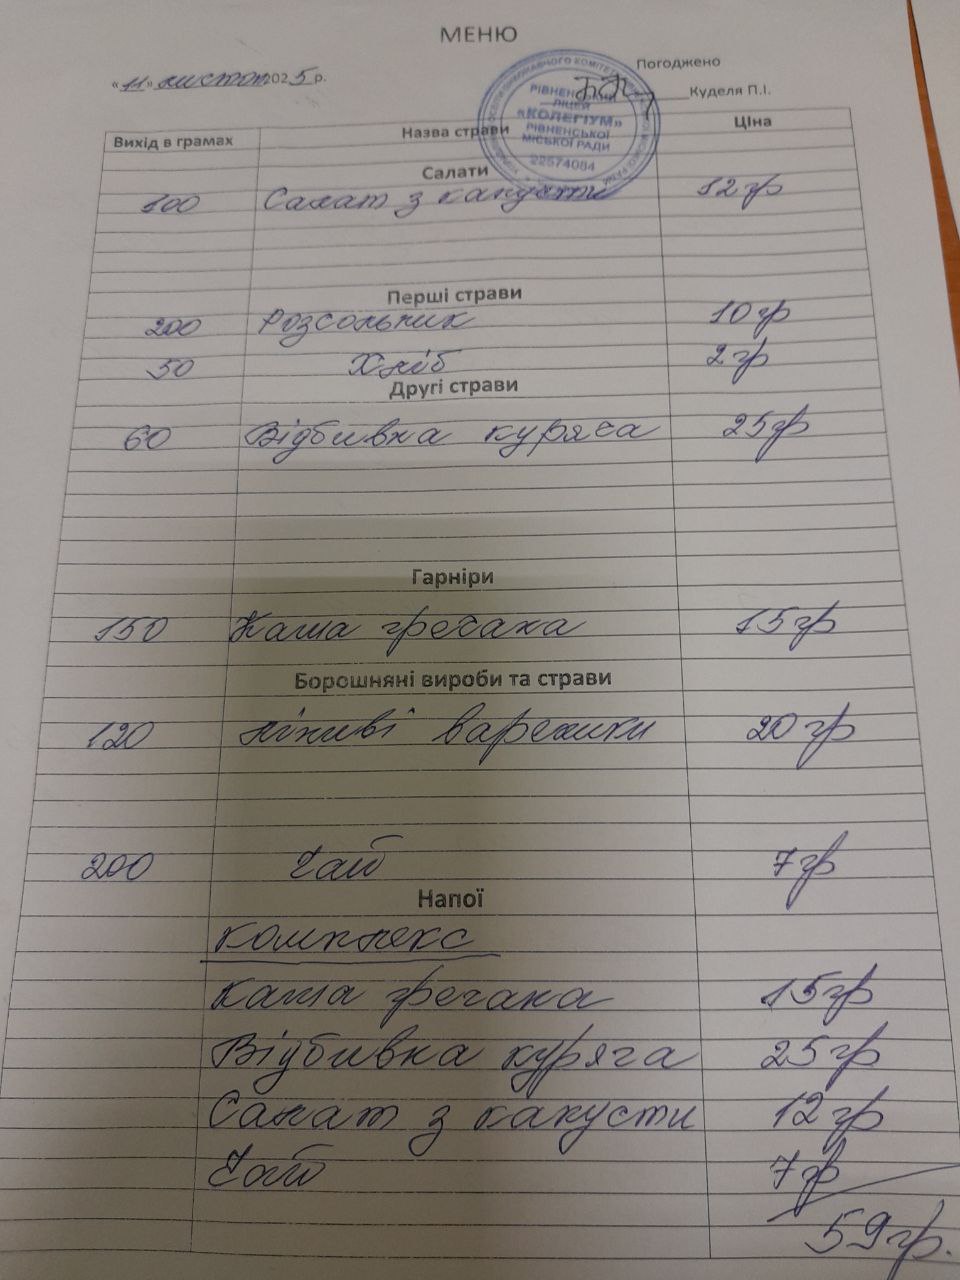 МЕНЮ
Погоджено
«11» листоп 2025 р.
Куделя П.І.
РІВНЕНСЬКИЙ
ЛІЦЕЙ
«КОЛЕГІУМ»
РІВНЕНСЬКОЇ
МІСЬКОЇ РАДИ
22574084
Вихід в грамах Назва страви Ціна
Салати
100 Салат з капусти 12 гр
Перші страви
200 Розсольник 10 гр
50 Хліб 2 гр
Другі страви
60 Відбивна куряча 25 гр
Гарніри
150 Каша гречана 15 гр
Борошняні вироби та страви
120 ліниві вареники 20 гр
200 Чай 7 гр
Напої
Комплекс
каша гречана 15 гр
Відбивна куряча 25 гр
Салат з капусти 12 гр
Чай 7 гр
59 гр.